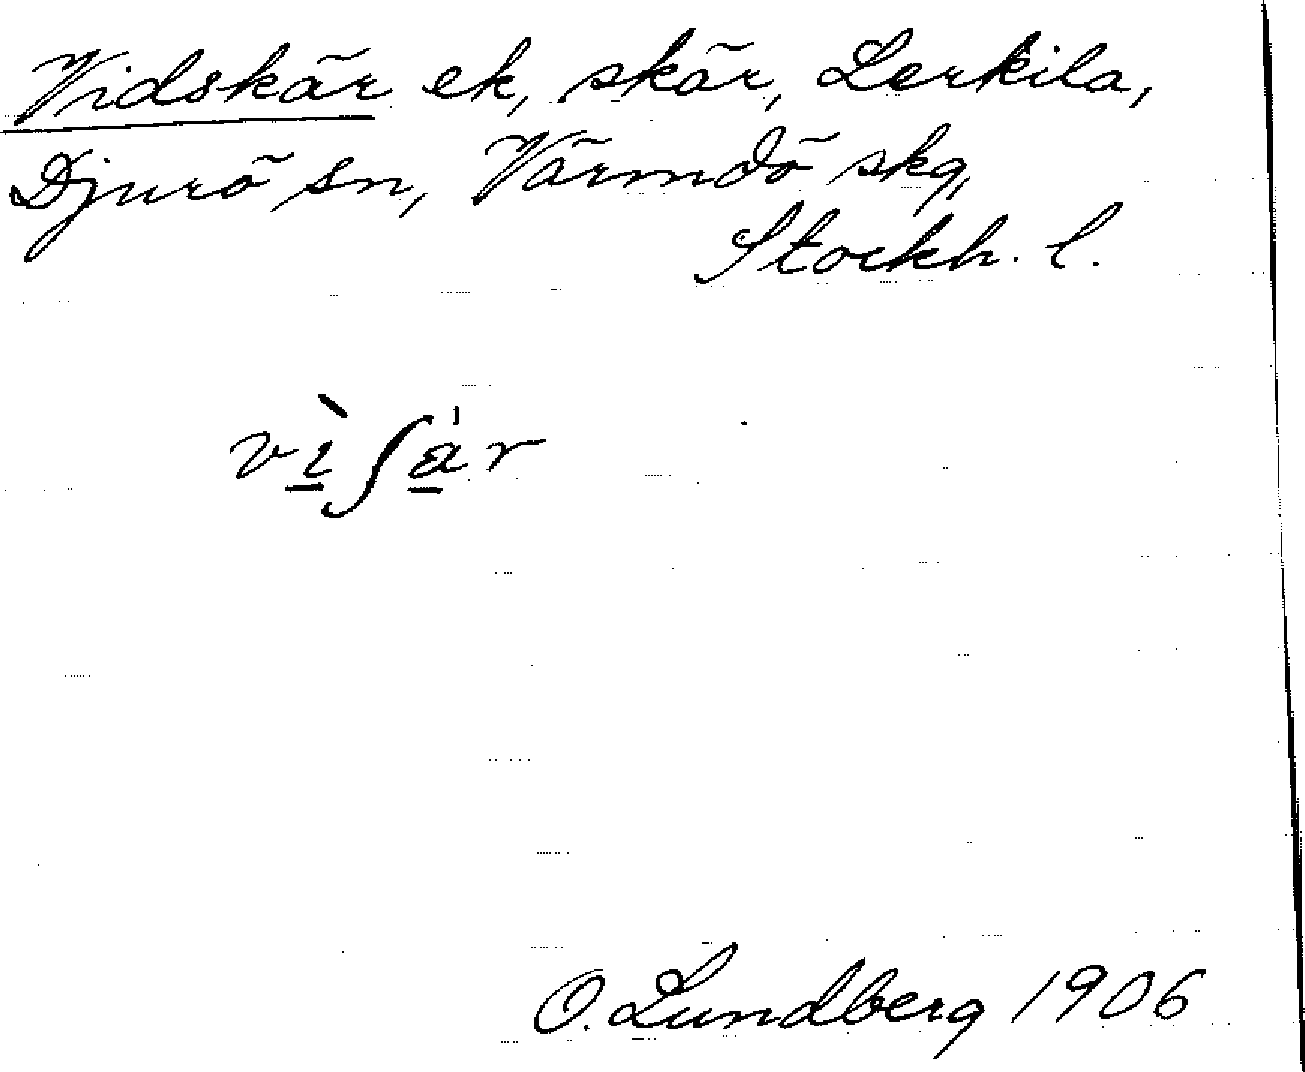 Vidskär ek, skär, Lerkila,
Djurö sn, Värmdö skg,
Stockh. l.
vìʃär
O. Lundberg 1906